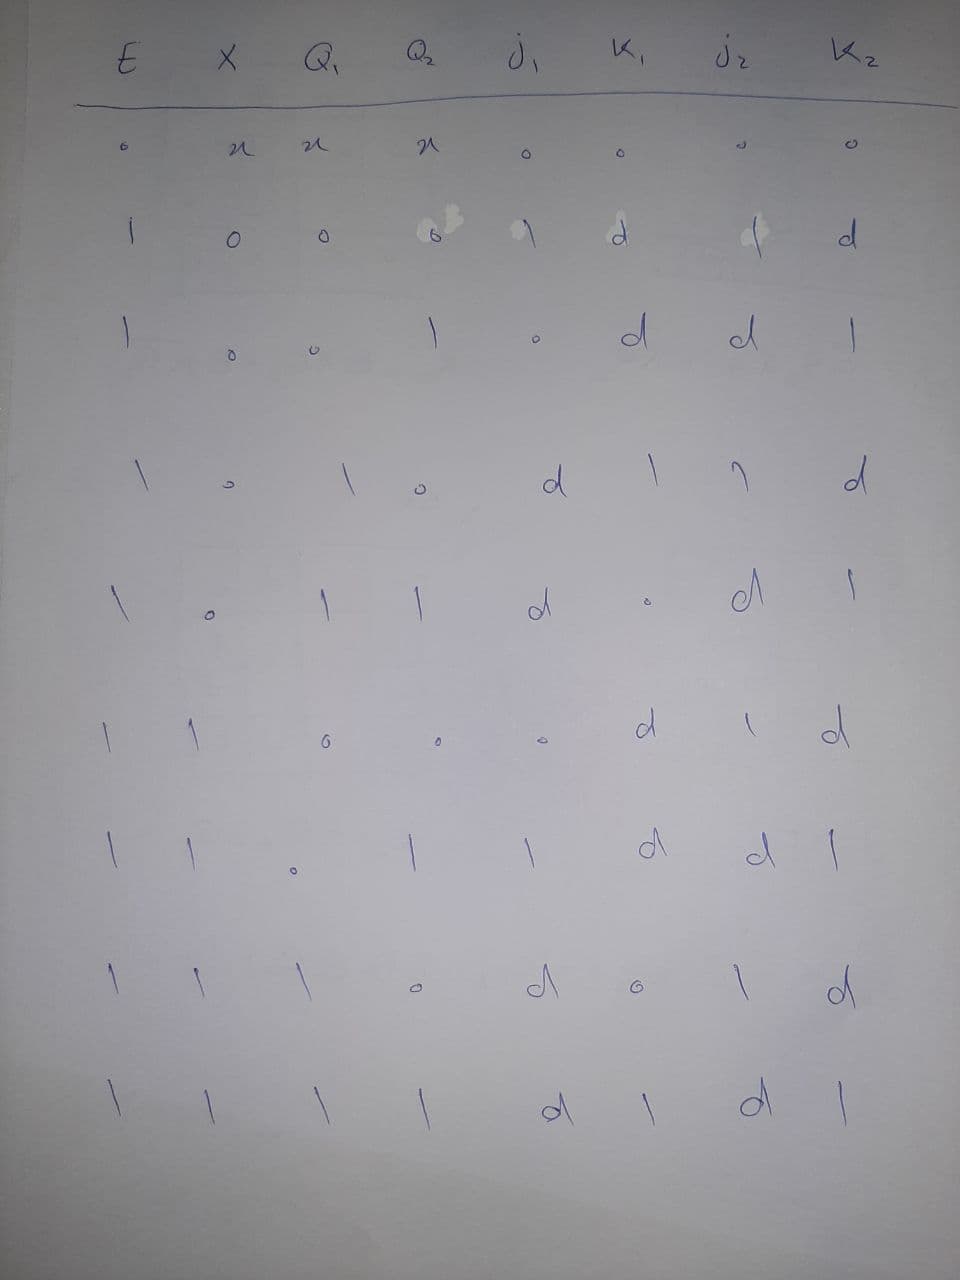 E X Q₁ Q₂ j₁ K₁ j₂ K₂
0 x x x 0 0 0 0
1 0 0 0 1 d 1 d
1 0 0 1 0 d d 1
1 0 1 0 d 1 1 d
1 0 1 1 d 0 d 1
1 1 0 0 0 d 1 d
1 1 0 1 1 d d 1
1 1 1 0 d 0 1 d
1 1 1 1 d 1 d 1